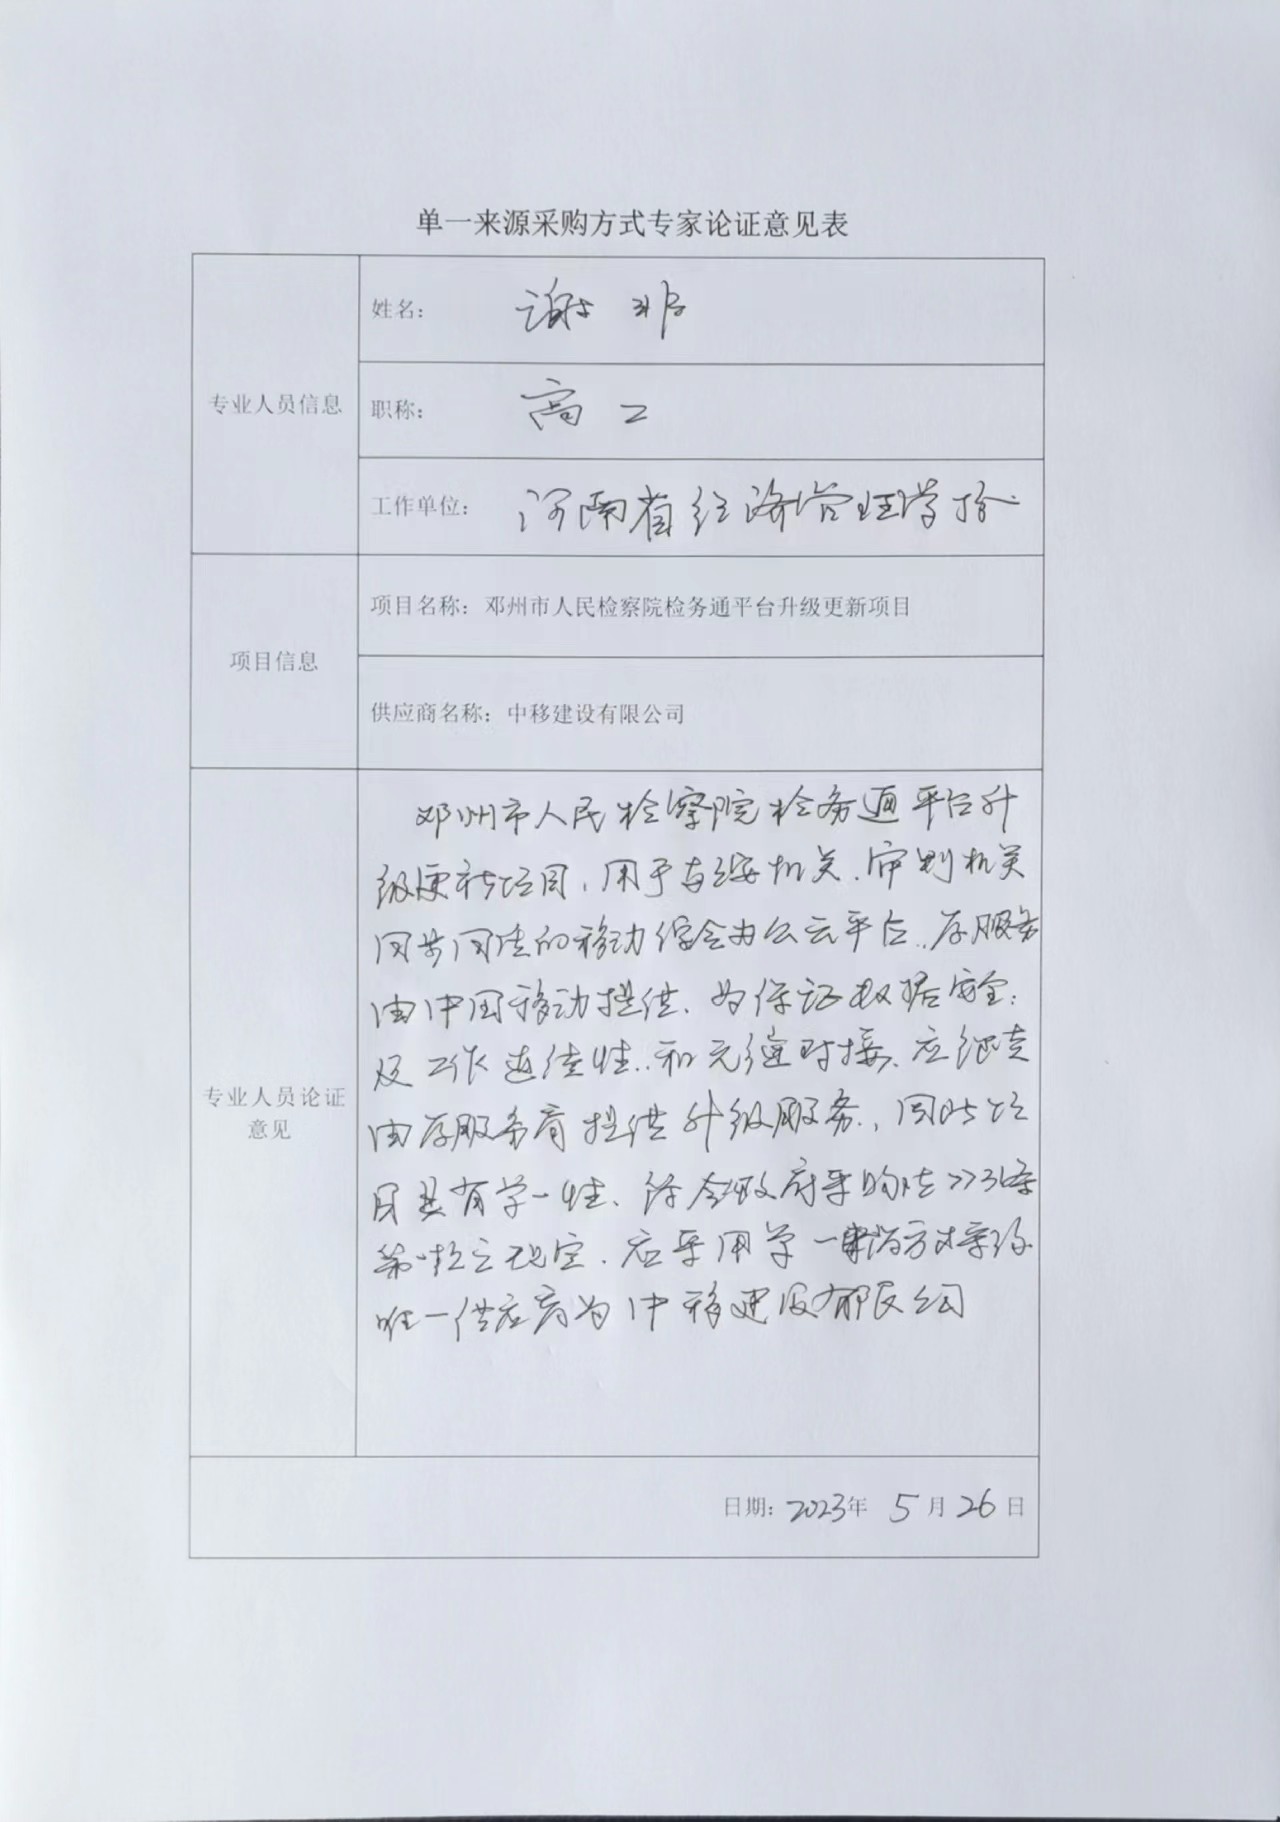 单一来源采购方式专家论证意见表
专业人员信息
姓名： 谢非
职称： 高工
工作单位： 河南省经济管理学校
项目信息
项目名称：邓州市人民检察院检务通平台升级更新项目
供应商名称：中移建设有限公司
专业人员论证
意见
邓州市人民检察院检务通平台升
级更新项目，用于与公安机关、审判机关
同步同法的移动综合办公云平台，原服务
由中国移动提供、为保证数据安全，
及工作连续性，和无缝对接、应继续
由原服务商提供升级服务，因此项
目具有单一性、符合政府采购法31条
第一款之规定，应采用单一来源方式采购
唯一供应商为中移建设有限公司
日期：2023年 5 月 26 日